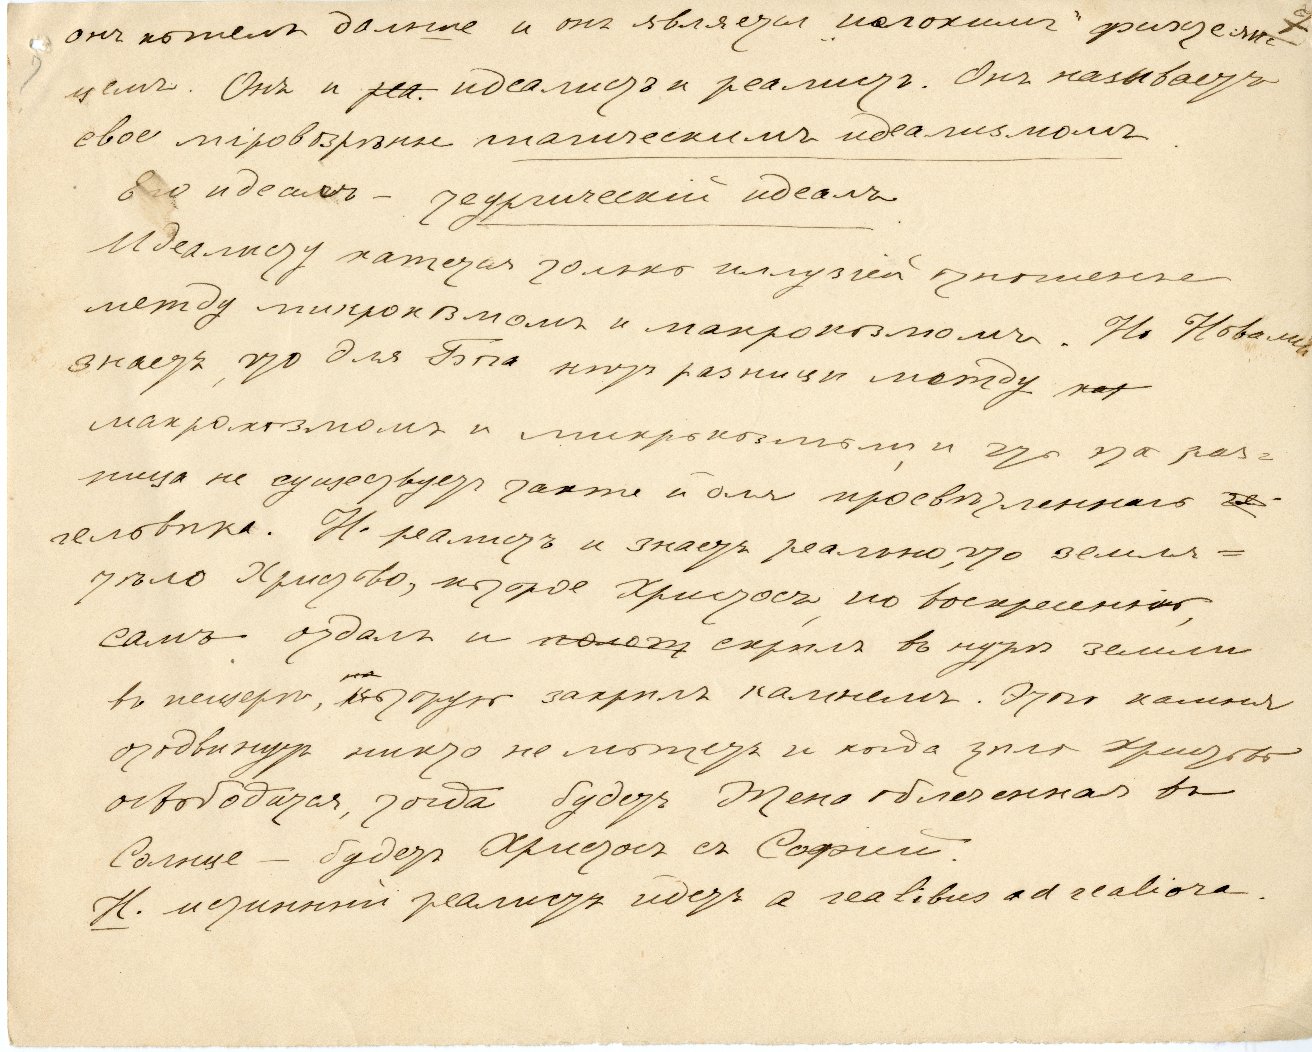 онъ хотелъ дальше и онъ является „плохимъ" фихтеян=
цемъ. Онъ и реа. идеалистъ и реалистъ. Онъ называетъ
свое мiровозрѣнiе магическимъ идеализмомъ.
Его идеалъ – теургическiй идеалъ
Идеалисту кажется только иллузiей отношенiе
между микрокозмомъ и макрокозмомъ. Но Новалис
знаетъ, что для Бога нѣтъ разницы между
макрокозмомъ и микрокозмомъ, и что эта раз=
ница не существуетъ также и для просвѣтленнаго че-
человѣка. Н. реалистъ и знаетъ реально, что земля =
тѣло Христово, которое Христосъ, по воскресенiю,
самъ отдалъ и полож скрылъ въ нутрѣ земли
въ пещерѣ, которую закрылъ камнемъ. Этого камня
отодвинуть никто не можетъ и когда тѣло Христово
освободится, тогда будетъ Жена облеченная въ
Солнце – будетъ Христосъ съ Софiй.
Н. истинный реалистъ идетъ a realibus ad realiora.